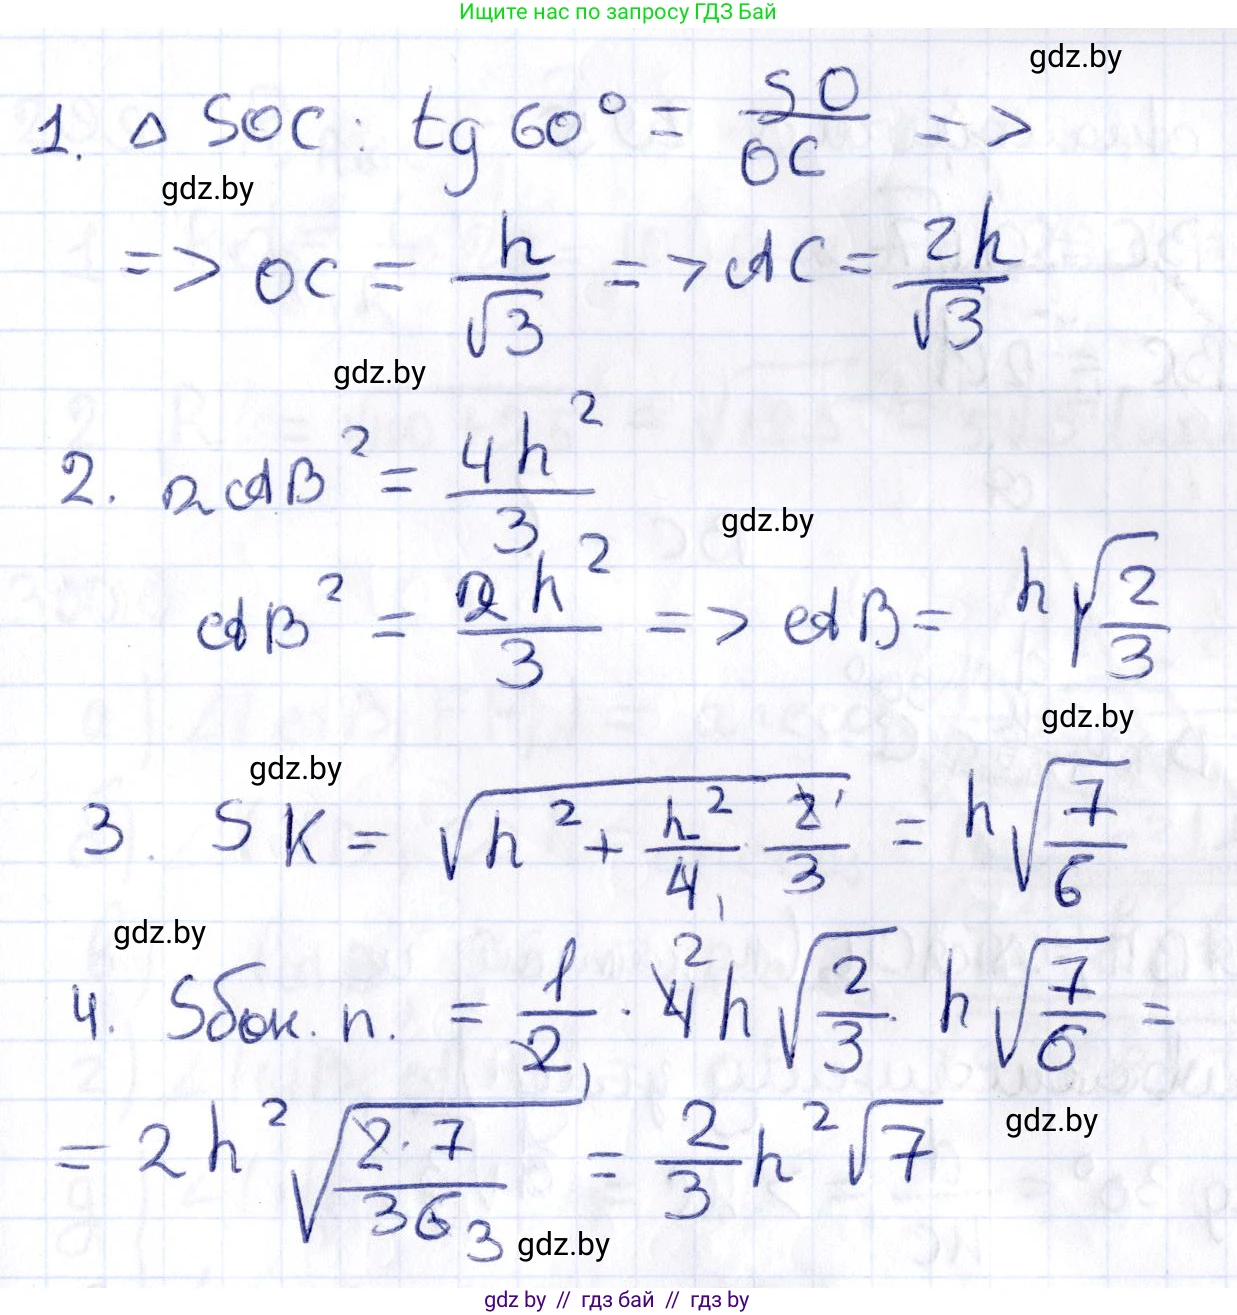 Ищите нас по запросу ГДЗ Бай
gdz.by
1. △ SOC: tg 60° = SO/OC =>
gdz.by
=> OC = h/√3 => AC = 2h/√3
gdz.by
2. 2AB² = 4h²/3
gdz.by
AB² = 2h²/3 => AB = h√(2/3)
gdz.by
gdz.by
3. SK = √(h² + h²/4 · 2/3) = h√(7/6)
gdz.by
4. Sбок. п. = 1/2 · 4h√(2/3) · h√(7/6) =
= 2h²√(2·7/(3·6)) = 2/3 h²√7
gdz.by
gdz.by
gdz by // гдз бай // gdz by